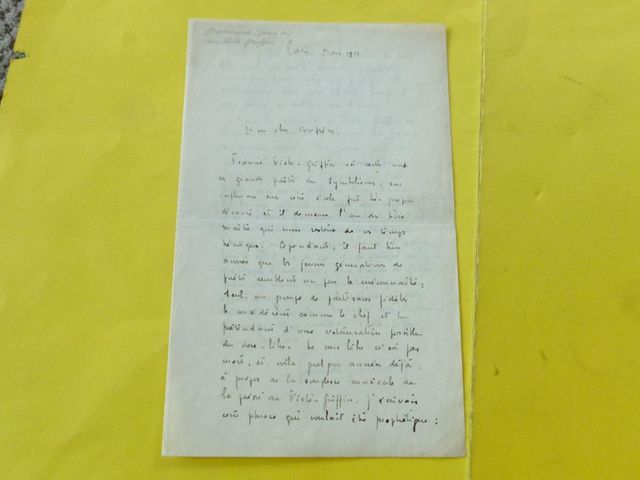 Mon cher confrère,
Francis Vielé-Griffin est certes un
des grands poètes du Symbolisme, son
influence sur cette école fut très
et il demeure l'un des
qui nous restent de ces temps
héroïques. Cependant, il faut bien
que les jeunes générations de
poètes semblent un peu le méconnaître ;
Seul, un groupe de partisans fidèles
le considèrent comme le chef et le
d'une possible
du vers-libre. Le vers libre n'est pas
mort, et, voilà quelques années déjà,
à propos de la souplesse musicale de
la poésie de Vielé-Griffin, j'écrivais
cette phrase qui voulait être prophétique :